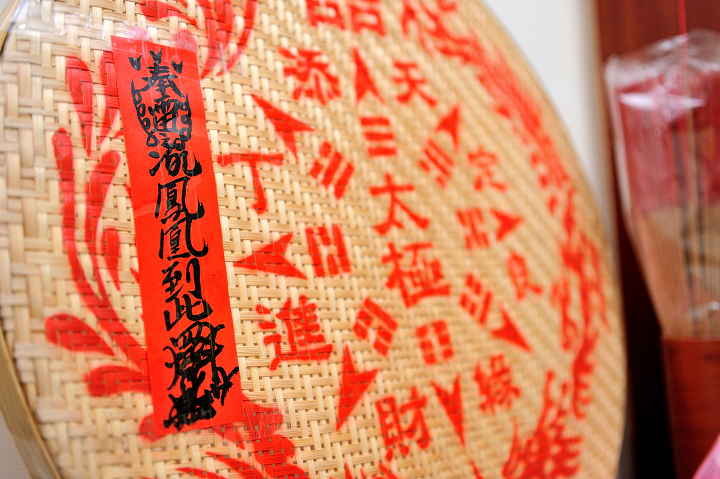 奉
鳳凰到此
添
天
丁
定
太極
良
進
緣
財